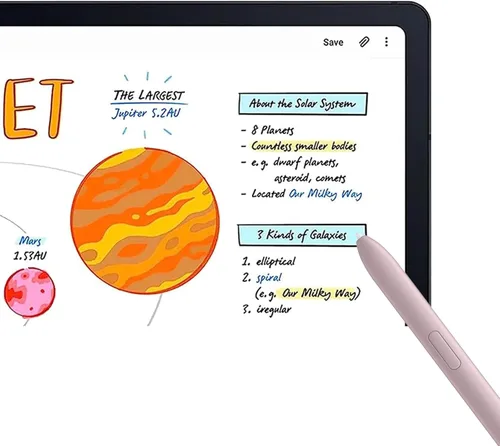 Save
ET
THE LARGEST
Jupiter 5.2AU
Mars
1.53AU
About the Solar System
- 8 Planets
- Countless smaller bodies
- e.g. dwarf planets,
asteroid, comets
- Located Our Milky Way
3 Kinds of Galaxies
1. elliptical
2. spiral
(e.g. Our Milky Way)
3. iregular